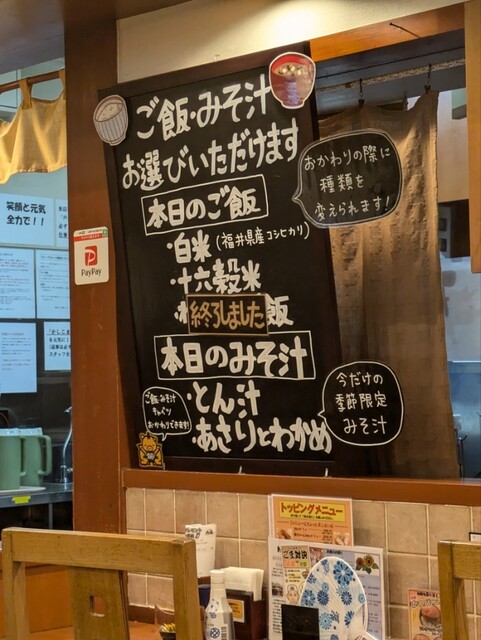 ご飯・みそ汁
お選びいただけます
おかわりの際に
種類を
変えられます!
本日のご飯
・白米(福井県産コシヒカリ)
・十六穀米
終了しました
飯
本日のみそ汁
・とん汁
・あさりとわかめ
今だけの
季節限定
みそ汁
ご飯・みそ汁
キャベツ
おかわりできます!
笑顔と元気
全力で!!
PayPay
トッピングメニュー